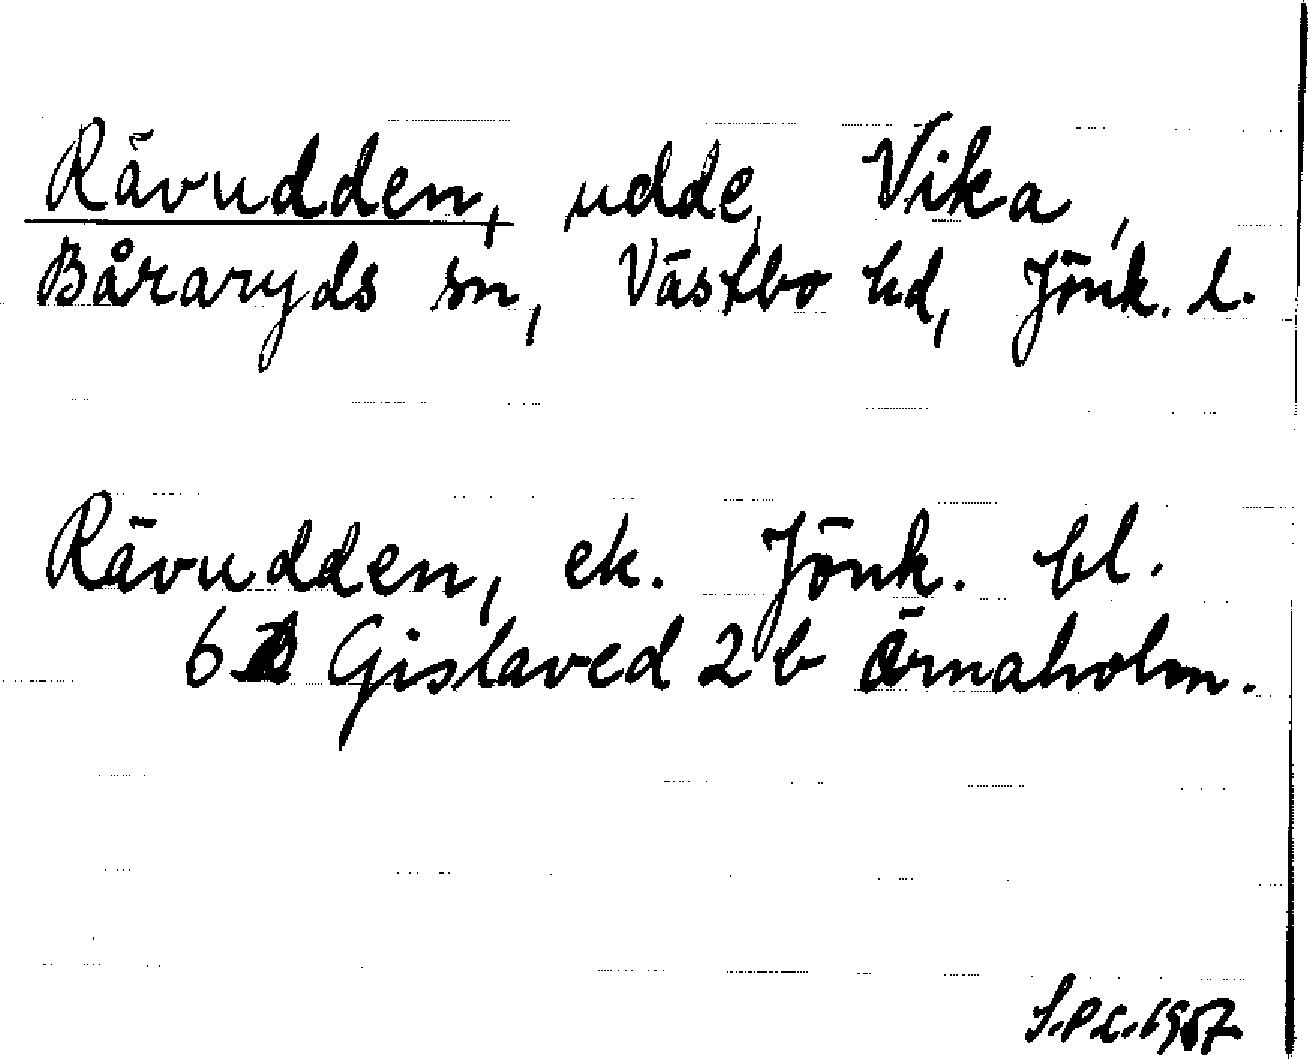 Rävudden, udde, Vika,
Båraryds sn, Västbo hd, Jönk. l.
Rävudden, ek. Jönk. bl.
6 D Gislaved 2 b Årnaholm.
S.P.C. 1957